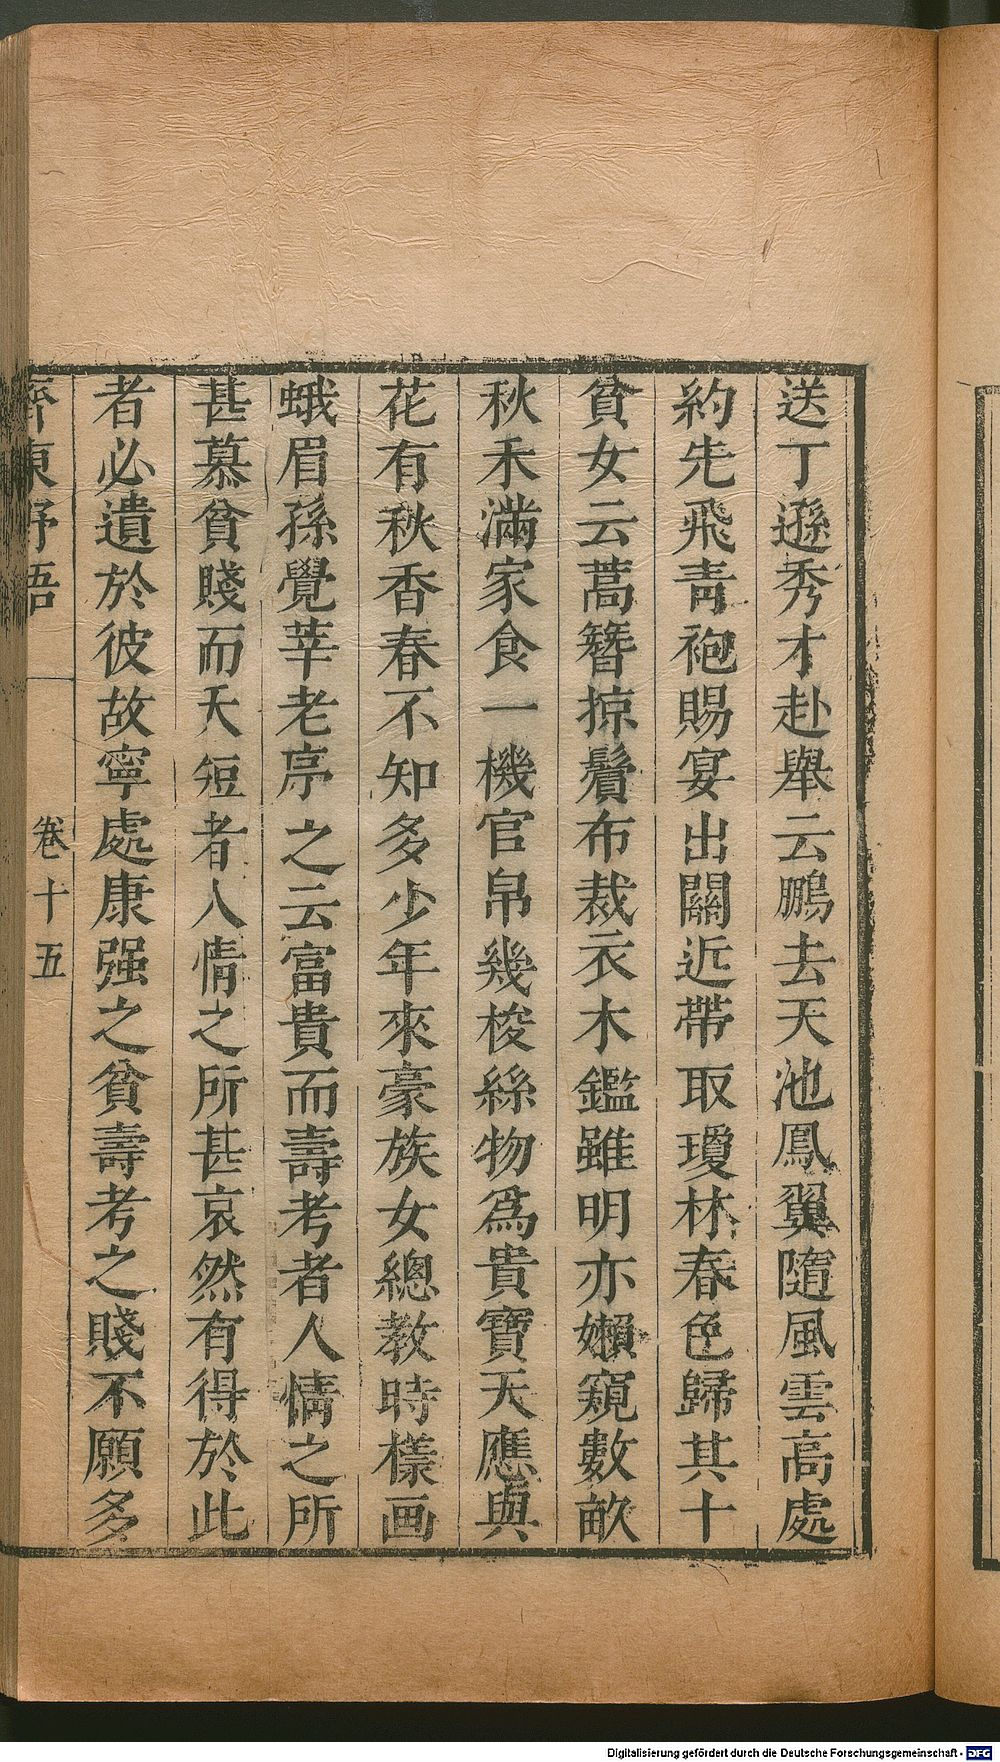 送丁遜秀才赴舉云鵬去天池鳳翼隨風雲高處
約先飛青袍賜宴出關近帶取瓊林春色歸其十
貧女云蒿簪掠鬢布裁衣木鑑雖明亦嬾窺數畝
秋禾滿家食一機官帛幾梭絲物爲貴寶天應與
花有秋香春不知多少年來豪族女總教時樣画
蛾眉孫覺莘老序之云富貴而壽考者人情之所
甚慕貧賤而夭短者人情之所甚哀然有得於此
者必遺於彼故寧處康强之貧壽考之賤不願多
齊東野語 卷十五
Digitalisierung gefördert durch die Deutsche Forschungsgemeinschaft - DFG